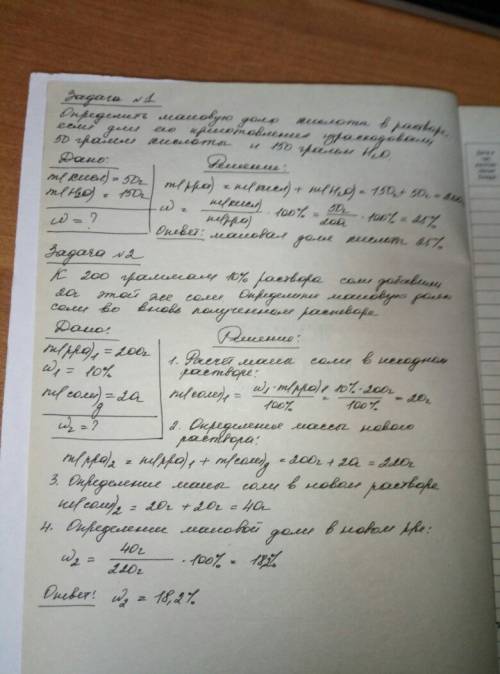 Задача №1
Определить массовую долю кислоты в растворе,
если для его приготовления израсходовали
50 грамм кислоты и 150 грамм H₂O.
Дано: Решение:
m(кисл) = 50г m(рра) = m(кисл) + m(H₂O) = 150г + 50г = 200г
m(H₂O) = 150г
w = ? w = m(кисл)/m(рра) · 100% = 50г/200г · 100% = 25%
Ответ: массовая доля кислоты 25%
Задача №2
К 200 граммам 10% раствора соли добавили
20г этой же соли. Определить массовую долю
соли во вновь полученном растворе
Дано: Решение:
m(рра)₁ = 200г 1. Расчёт массы соли в исходном
w₁ = 10% растворе:
m(соли)g = 20г m(соли)₁ = w₁ · m(рра)1/100% = 10% · 200г/100% = 20г
w₂ = ? 2. Определение массы нового
раствора:
m(рра)₂ = m(рра)₁ + m(соли)g = 200г + 20г = 220г
3. Определение массы соли в новом растворе
m(соли)₂ = 20г + 20г = 40г
4. Определение массовой доли в новом рре:
w₂ = 40г/220г · 100% = 18,2%
Ответ: w₂ = 18,2%